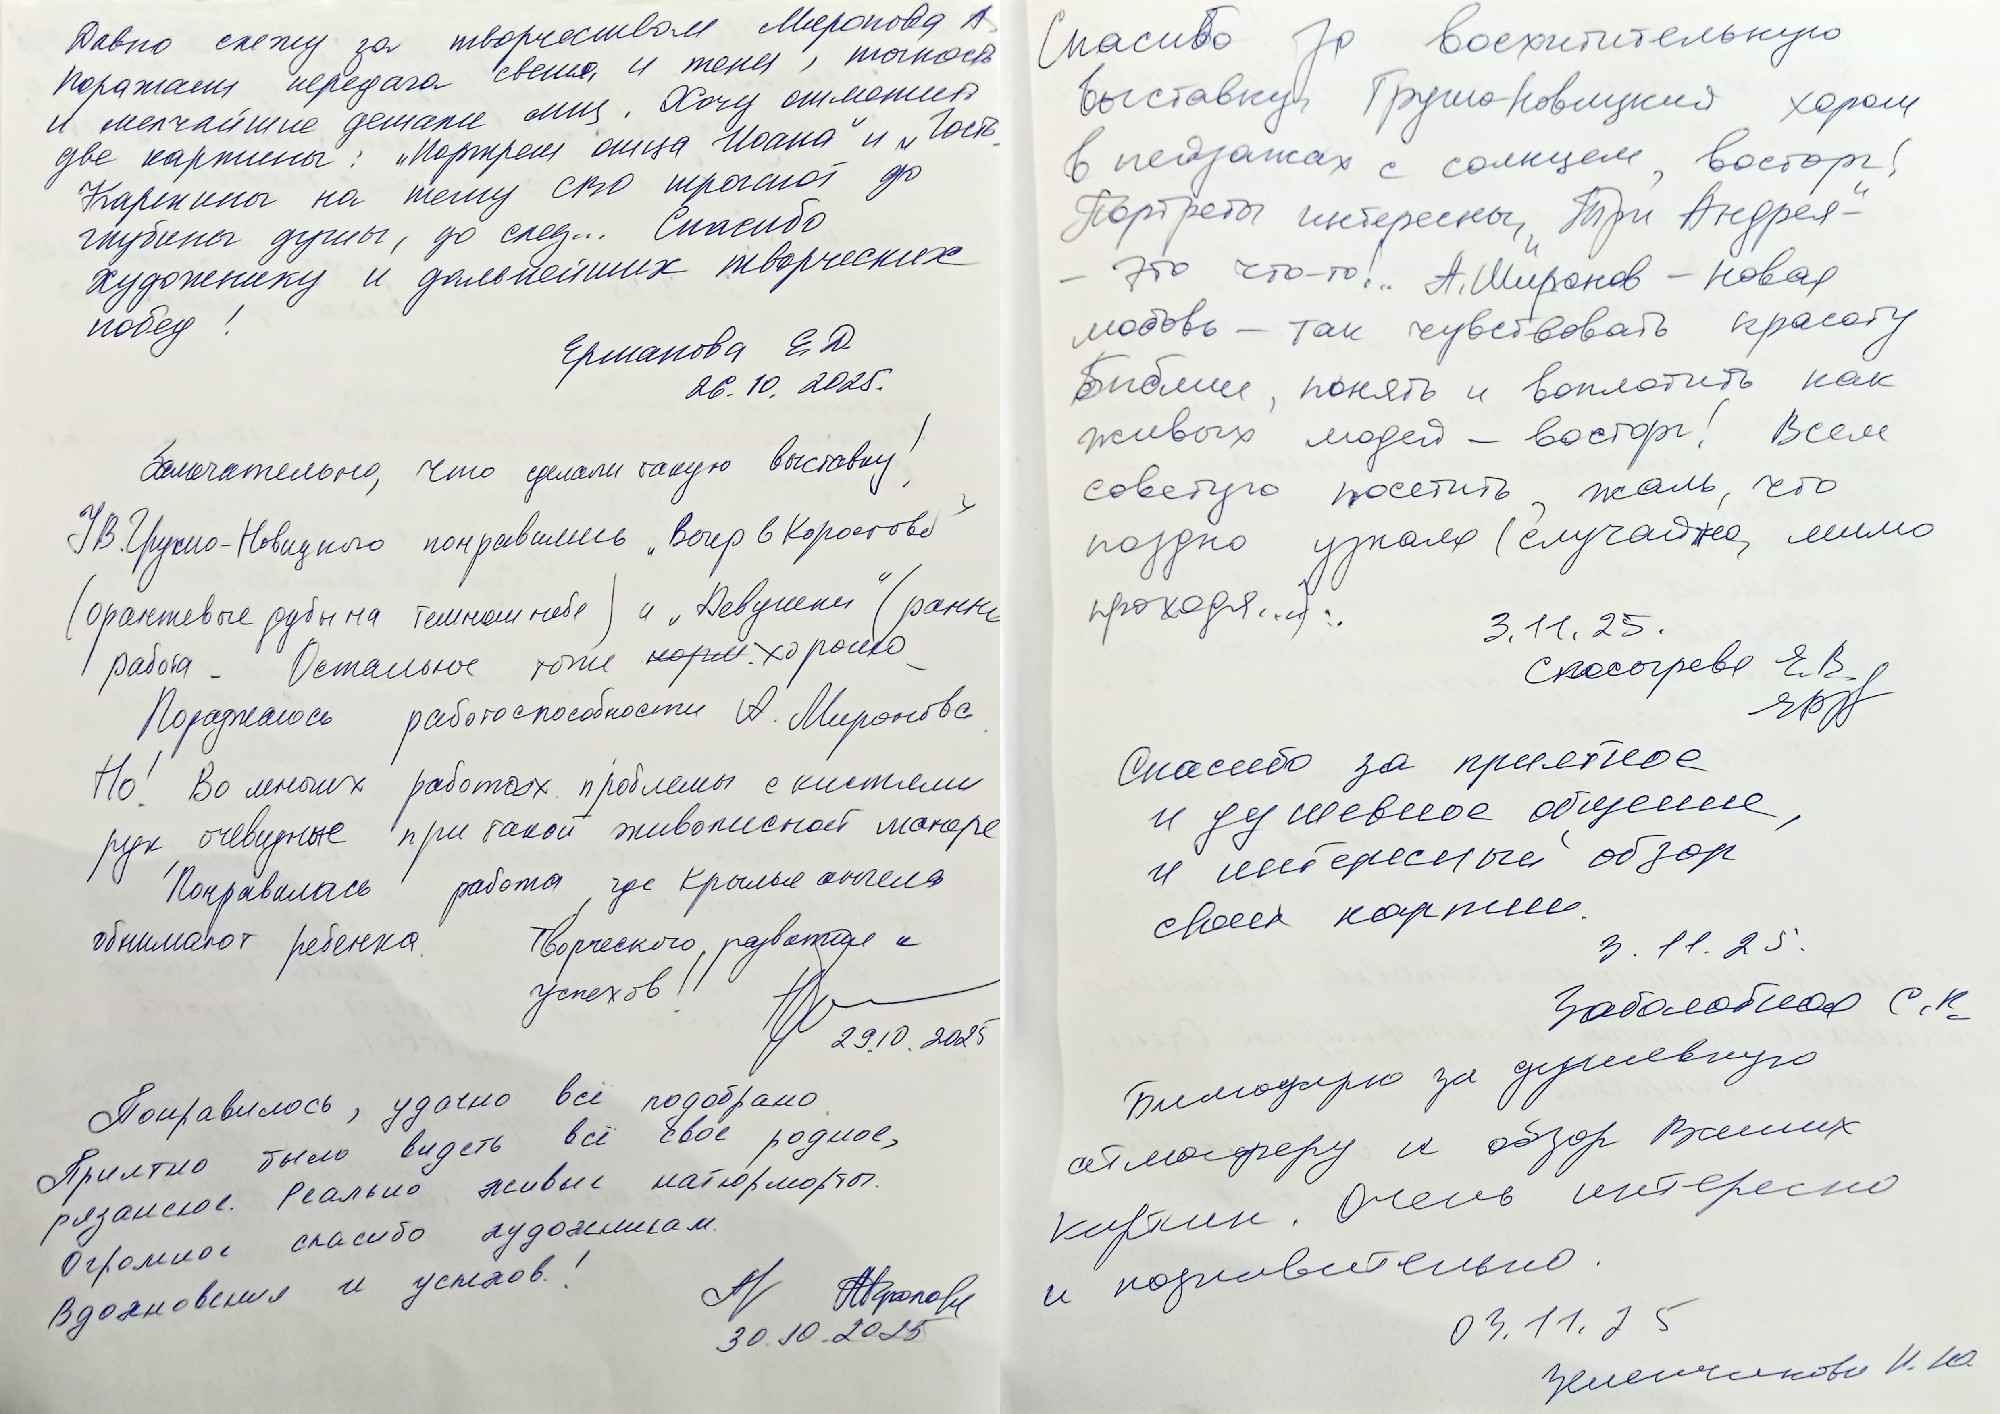 Давно слежу за творчеством Миронова А
Поражает передача света и тени, точность
и мельчайшие детали лиц. Хочу отметить
две картины: „Портрет отца Иоана" и „Гость
Картины на тему СВО трогают до
глубины души, до слез... Спасибо
художнику и дальнейших творческих
побед!
Ермакова Е.Д
26.10.2025.
Замечательно, что сделали такую выставку!
У В.Грушо-Новицкого понравились „Вечер в Коростово"
(оранжевые дубы на темном небе) и „Девушки" (ранн
работа – Остальное тоже норм. хорошо
Поражаюсь работоспособности А. Миронова
Но! Во многих работах проблемы с кистями
рук, очевидные при такой живописной манере
Понравилась работа, где крылья ангела
обнимают ребенка. Творческого развития и
успехов!!
29.10.2025
Понравилось, удачно всё подобрано.
Приятно было видеть всё своё родное,
рязанское. Реально живые натюрморты.
Огромное спасибо художникам.
Вдохновения и успехов!
30.10.2025
Спасибо за восхитительную
выставку, Грушо-Новицкий хорош
в пейзажах с солнцем, восторг!
Портреты интересны, „Три Андрея"-
- это что-то!.. А.Миронов – новая
любовь – так чувствовать красоту
Библии, понять и воплотить как
живых людей – восторг! Всем
советую посетить, жаль, что
поздно узнала (случайно, мимо
проходя...)...
3.11.25.
Скосырева Е.В.
Спасибо за приятное
и душевное общение,
и интересный обзор
своих картин.
3.11.25.
Заболотная С.К
Благодарю за душевную
атмосферу и обзор Ваших
картин. Очень интересно
и познавательно.
03.11.25
Зеленчикова И.Ю.